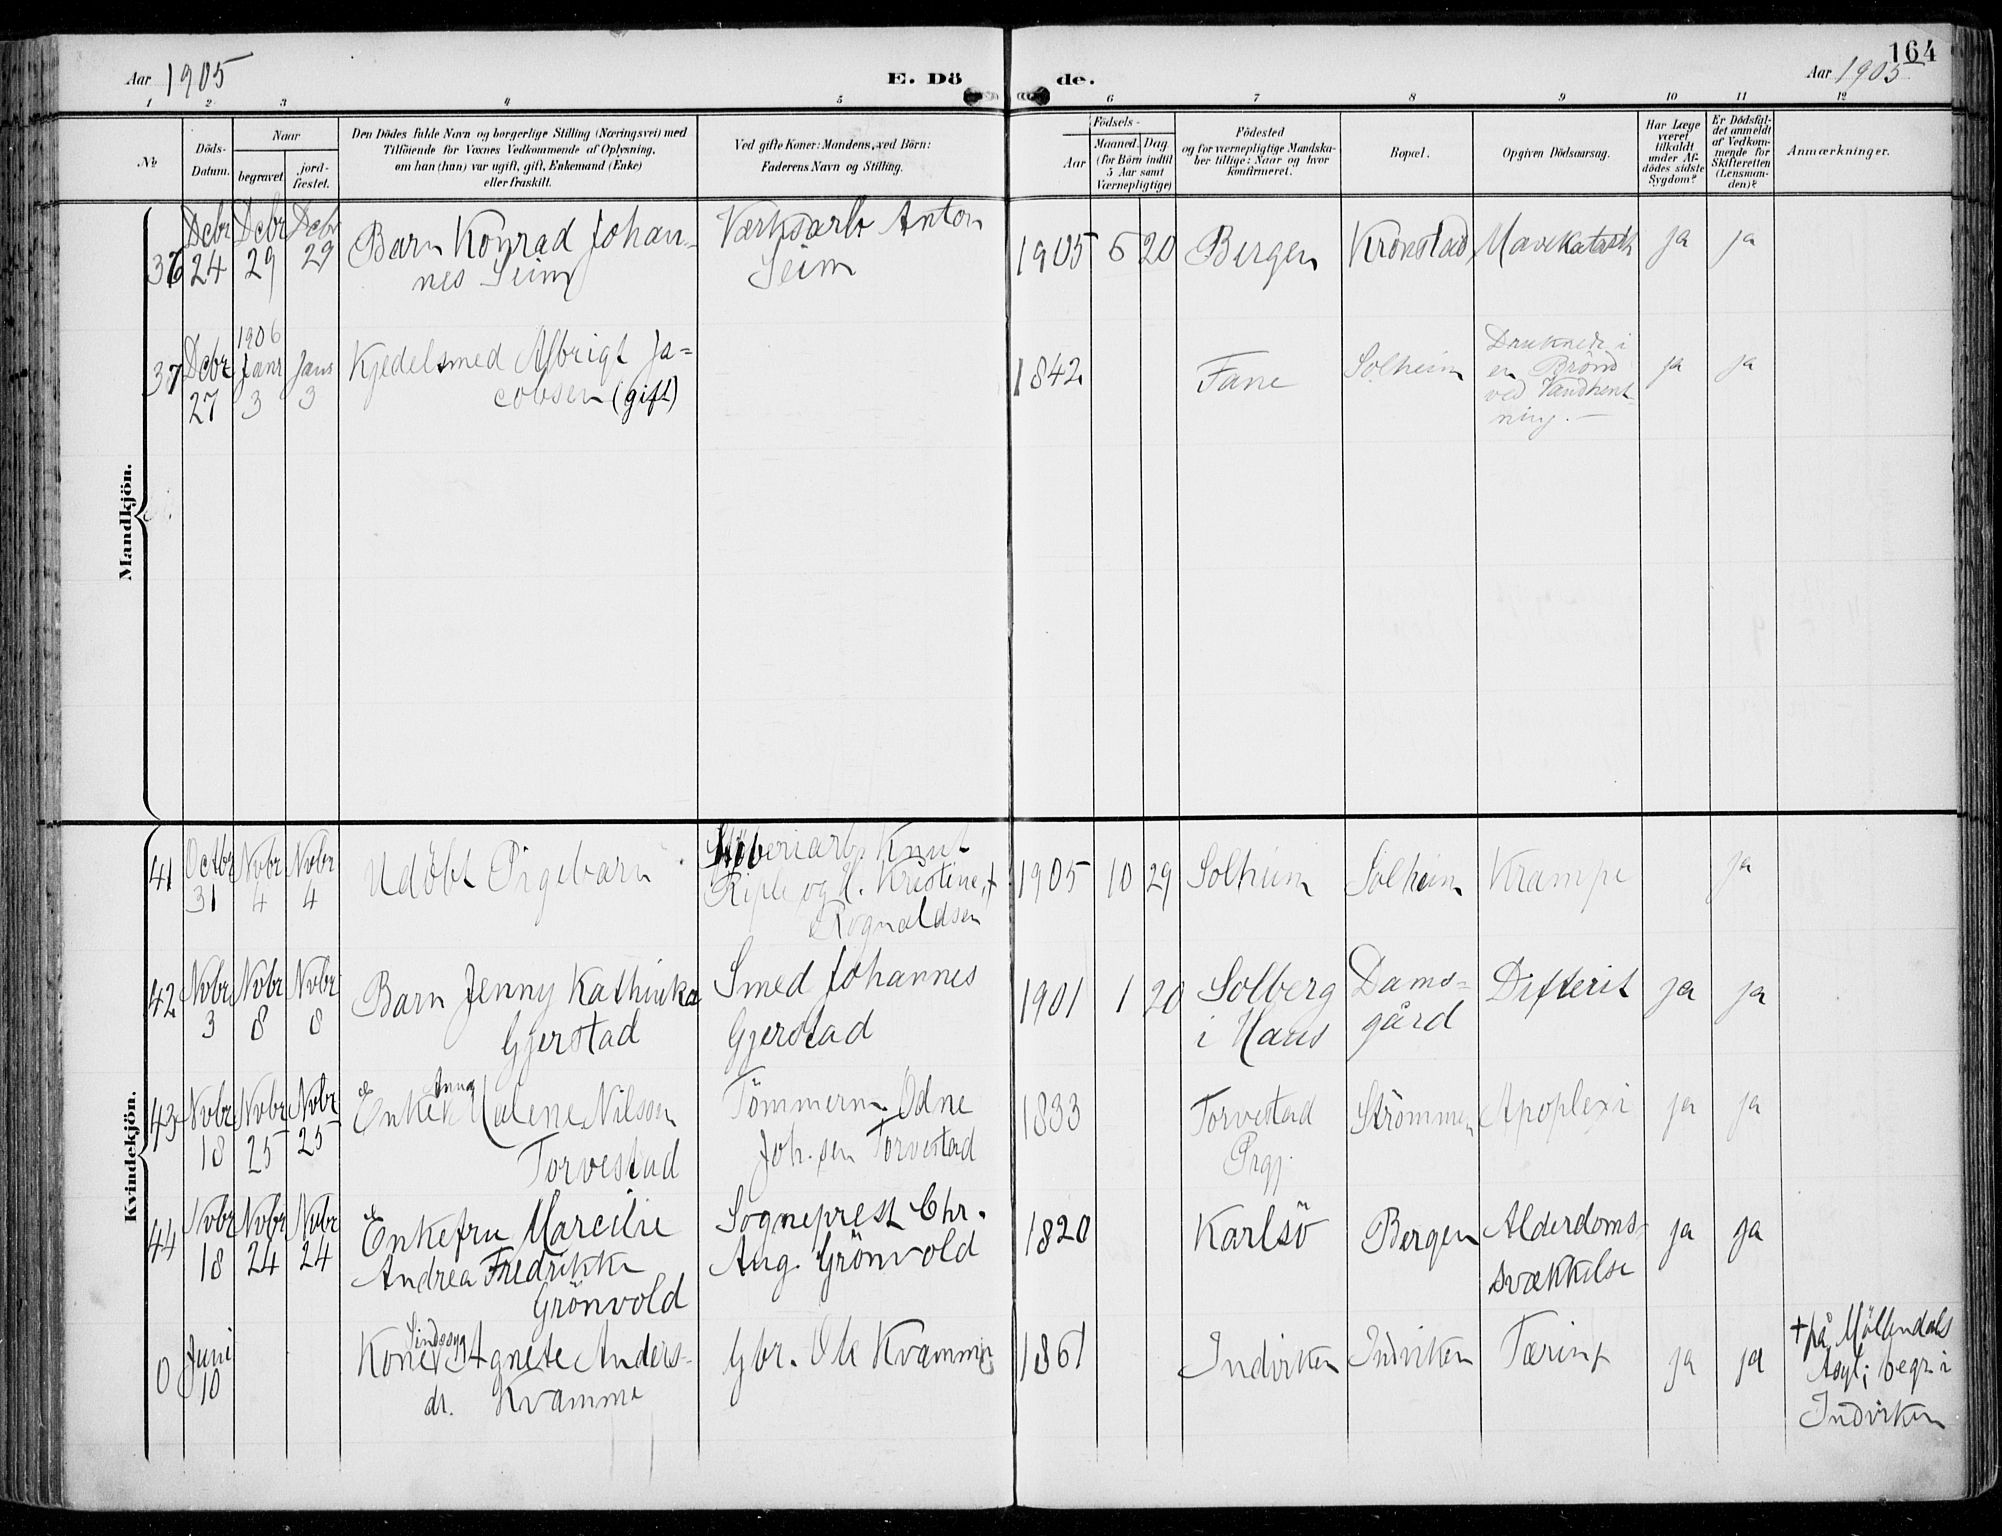 164
Aar 1905
E. Dö de.
Aar 1905
1 2 3 4 5 6 7 8 9 10 11 12
№
Döds-
Datum.
Naar
begravet.
jord-
fæstet.
Den Dödes fulde Navn og borgerlige Stilling (Næringsvei) med
Tilföiende for Voxnes Vedkommende af Oplysning,
om han (hun) var ugift, gift, Enkemand (Enke)
eller fraskilt.
Ved gifte Koner: Mandens, ved Börn:
Faderens Navn og Stilling.
Födsels-
Aar
Maaned.
(for Börn indtil
5 Aar samt
Værnepligtige)
Dag
Födested
og for værnepligtige Mandska-
ber tillige: Naar og hvor
konfirmeret.
Bopæl.
Opgiven Dödsaarsag.
Har Læge
været
tilkaldt
under Af-
dödes sidste
Sygdom?
Er Dödsfal-
det anmeldt
af Vedkom-
mende for
Skifteretten
(Lensman-
den)?
Anmærkninger.
Mandkjön.
36
Dcbr
24
Dcbr
29
Dcbr
29
Barn Konrad Johan-
nes Seim
Værksarb Anton
Seim
1905 5 20
Bergen
Kronstad
Mavekatarrh
ja
ja
37
Dcbr
27
1906
Janr
3
Janr
3
Kjedelsmed Albrigt Ja-
cobsen (gift)
1842
Fane
Solheim
Druknede i
en Brönd
ved Vandhent-
ning. –
ja
ja
Kvindekjön.
41
Octbr
31
Nvbr
4
Nvbr
4
Udöbt Pigebarn
Stöberiarb. Knut
Riple og h. Kristine, f
Rognaldsen
1905 10 29
Solheim
Solheim
Krampe
ja
42
Nvbr
3
Nvbr
8
Nvbr
8
Barn Jenny Kathinka
Gjerstad
Smed Johannes
Gjerstad
1901 1 20
Solberg
i Haus
Dams-
gård
Difterit
ja
ja
43
Nvbr
18
Nvbr
25
Nvbr
25
Anna
Enke Malene Nilsen
Torvestad
Tömmerm. Odne
Joh.sen Torvestad
1833
Torvestad
Prgj.
Strömmen
Apoplexi
ja
ja
44
Nvbr
18
Nvbr
24
Nvbr
24
Enkefru Marcilie
Andrea Fredrikke
Grönvold
Sogneprest Chr.
Aug. Grönvold
1820
Karlsö
Bergen
Alderdoms-
svækkelse
ja
ja
0
Juni
10
Sindssyg
Kone Agnete Anders-
dr. Kvamme
Gbr. Ole Kvamme
1861
Indviken
Indviken
Tæring
ja
ja
+ på Möllendals
Asyl; begr. i
Indviken